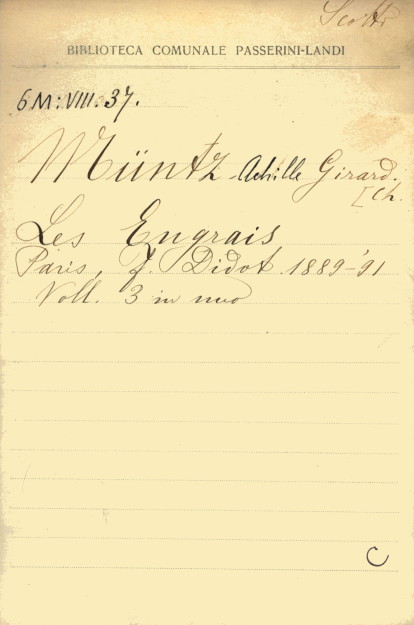 Scotti
BIBLIOTECA COMUNALE PASSERINI-LANDI
6M:VIII.37.
Müntz Achille Girard.
[Ch.
Les Engrais
Paris, F. Didot. 1889-'91
Voll. 3 in uno
C